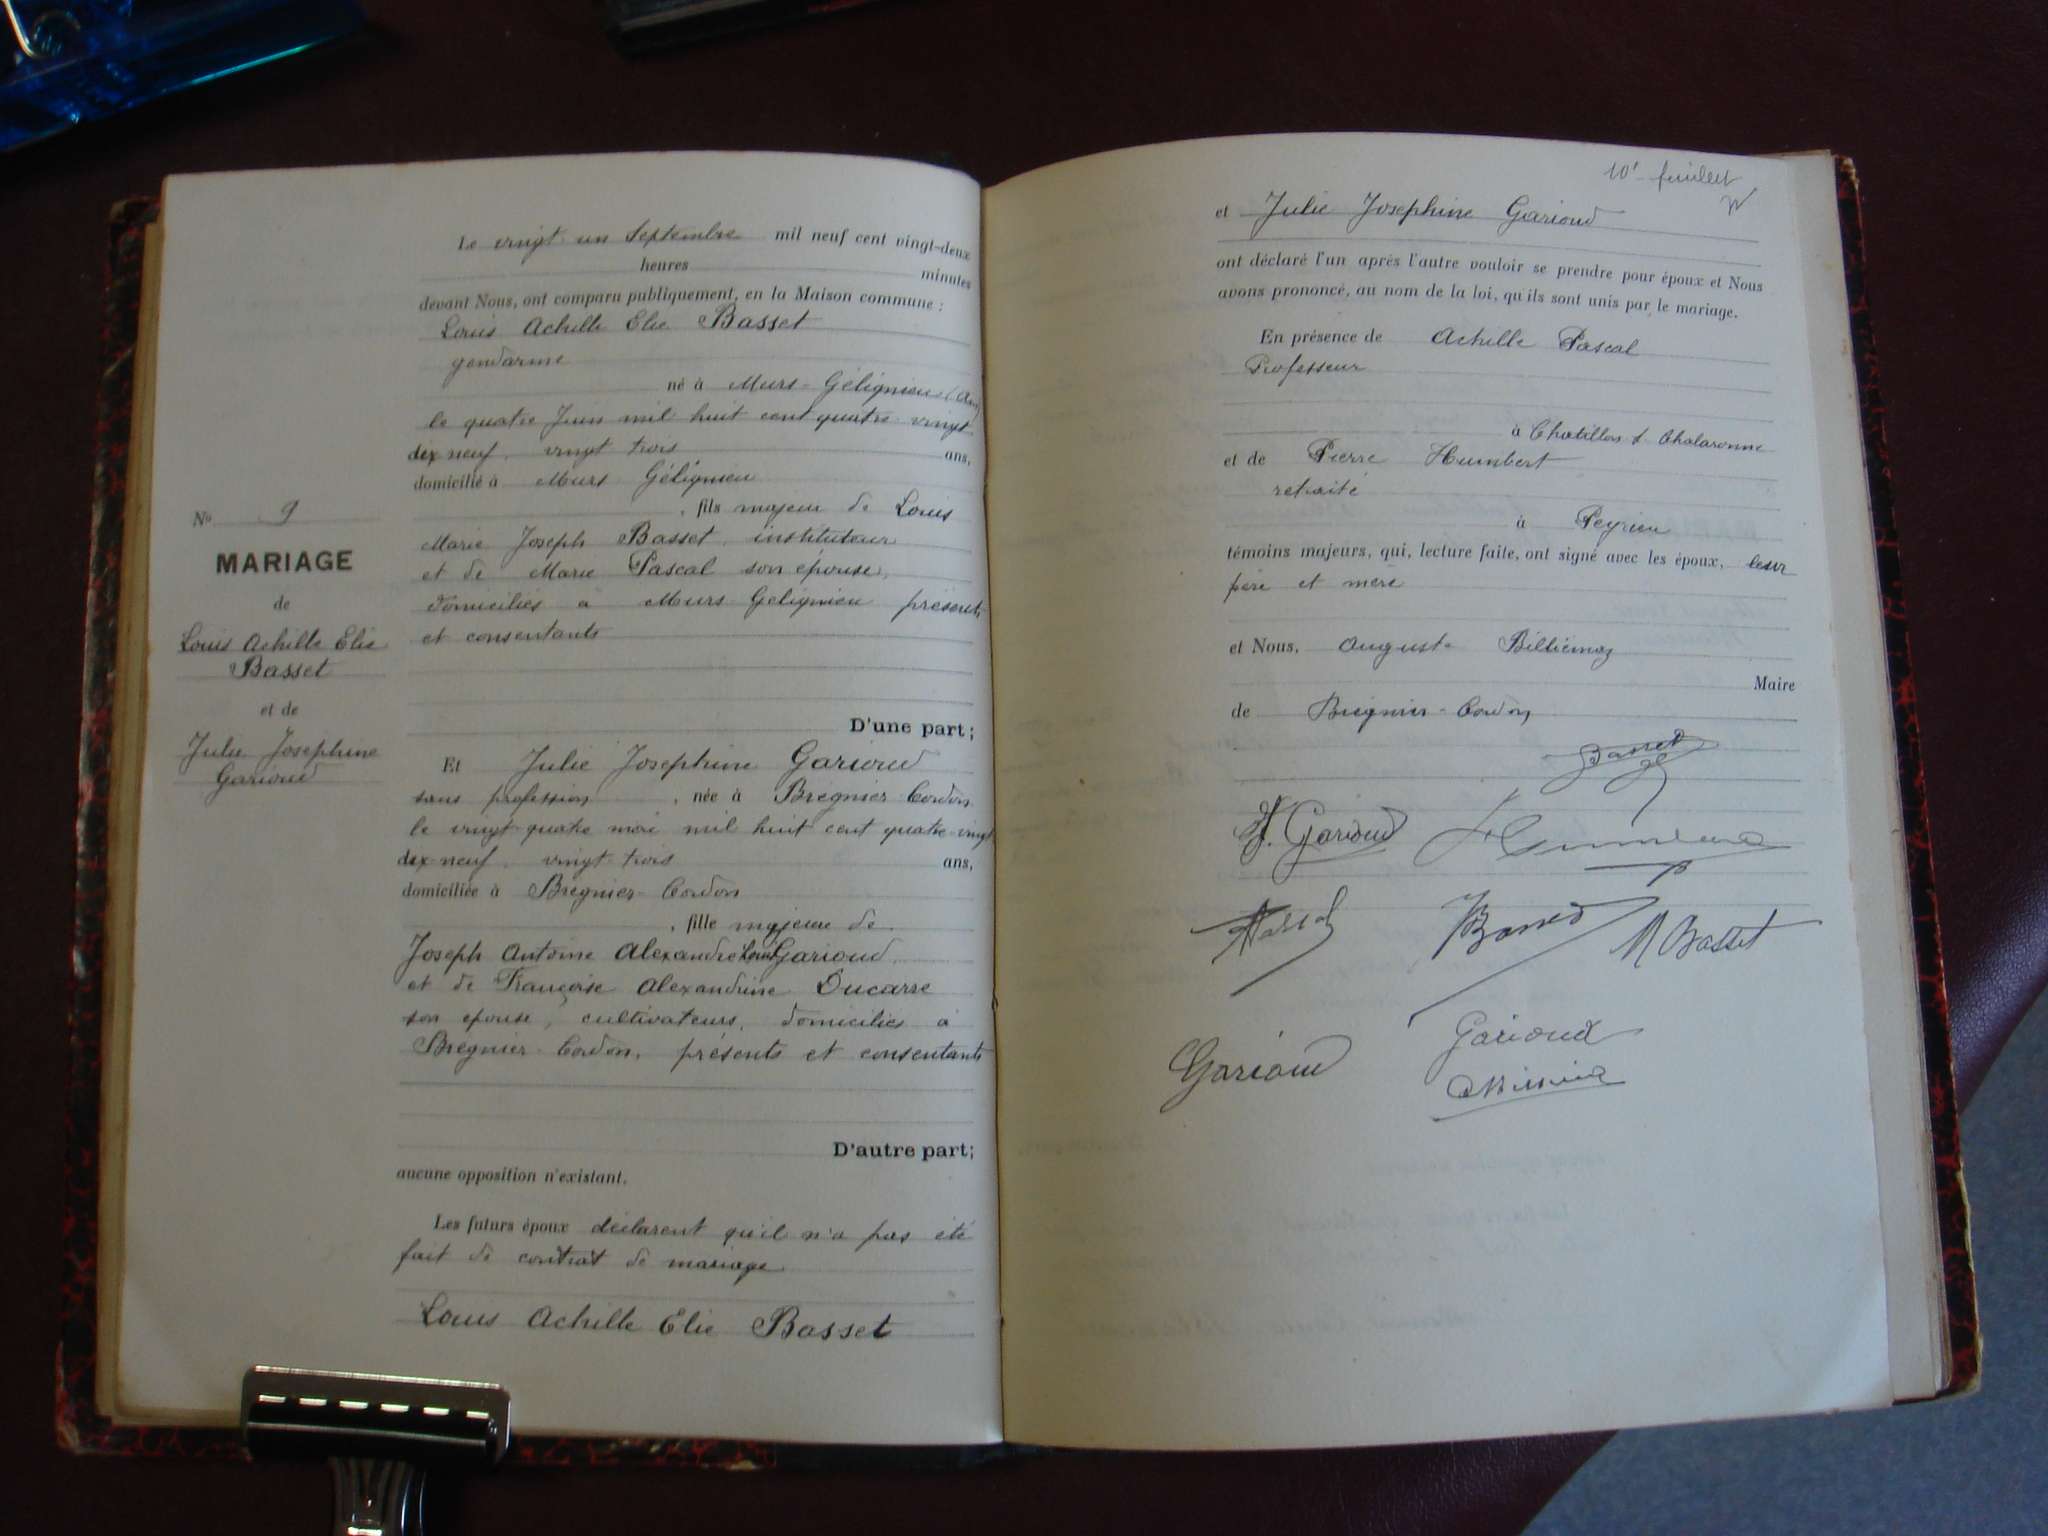 Le vingt un Septembre mil neuf cent vingt-deux
heures minutes
devant Nous, ont comparu publiquement, en la Maison commune :
Louis Achille Elie Basset
gendarme
né à Murs-Gélignieu (Ain)
le quatre Juin mil huit cent quatre-vingt
dix neuf, vingt trois ans,
domicilié à Murs Gélignieu
, fils majeur de Louis
Marie Joseph Basset, instituteur
et de Marie Pascal son épouse,
domiciliés à Murs Gelignieu présents
et consentants
D'une part;
No 9
MARIAGE
de
Louis Achille Elie
Basset
et de
Julie Josephine
Garioud
Et Julie Josephine Garioud
sans profession, née à Bregnier Cordon
le vingt quatre mai mil huit cent quatre-vingt
dix-neuf, vingt trois ans,
domiciliée à Brégnier-Cordon
, fille majeure de
Joseph Antoine Alexandre Louis Garioud
et de Françoise Alexandrine Ducarre
son epouse, cultivateurs, domiciliés à
Bregnier-Cordon, présents et consentants
D'autre part;
aucune opposition n'existant.
Les futurs époux déclarent qu'il n'a pas été
fait de contrat de mariage
Louis Achille Elie Basset
10e feuillet
et Julie Josephine Garioud
ont déclaré l'un après l'autre vouloir se prendre pour époux et Nous
avons prononcé, au nom de la loi, qu'ils sont unis par le mariage.
En présence de Achille Pascal
Professeur
à Chatillon s Chalaronne
et de Pierre Humbert
retraité
à Peyrieu
témoins majeurs, qui, lecture faite, ont signé avec les époux, leur
père et mère
et Nous, Auguste Billiémaz
Maire
de Bregnier-Cordon
Basset
J. Garioud
Basset
M Basset
Garioud
Garioud